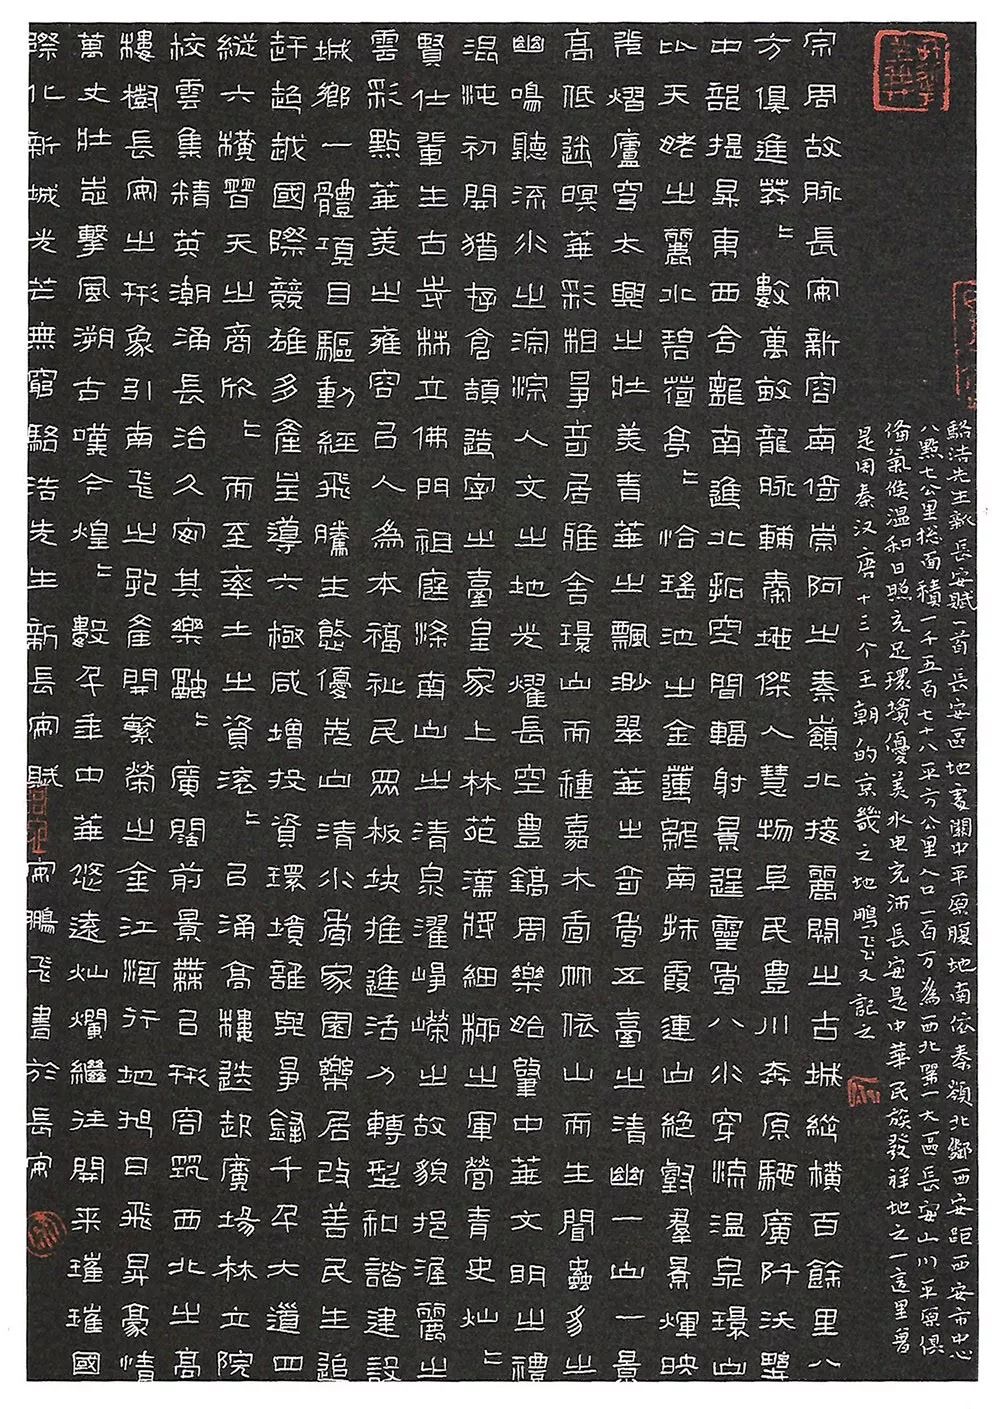 駱浩先生新長安賦一首長安區地處關中平原腹地南依秦嶺北鄰西安距西安市中心
八點七公里總面積一千五百七十八平方公里人口一百万為西北第一大區長安山川平原俱
俻氣候温和日照充足環境優美水电充沛長安是中華民族發祥地之一這里曾
是周秦汉唐十三个王朝的京畿之地鵬飞又記之
宗周故脉長安新容南倚崇阿之秦嶺北接麗關之古城縱橫百餘里八
方俱進莽〻數萬畝龍脉輔秦地傑人慧物阜民豊川奔原馳廣阡沃墅
中龍提昇東西合龍南進北拓空間輻射景逞靈秀八水穿流温泉環山
比天姥之麗水碧菡亭〻恰瑤池之金蓮終南抹霞連山絶壑羣景輝映
熠廬穹太興之壯美青華之飄渺翠華之奇秀五臺之清幽一山一景
高低迷暝華彩相爭奇居雅舍環山而種嘉木喬竹依山而生閒蟲多之
幽鳴聽流水之淙淙人文之地光耀長空豊鎬周樂始肇中華文明之禮
混沌初開猶存倉頡造字之臺皇家上林苑漢將細柳之軍營青史灿〻
賢仕輩生古寺林立佛門祖庭滌南山之清泉濯崢嶸之故貌挹渥麗之
雲彩點華美之雍容以人為本福祉民眾板块推進活力轉型和諧建設
城鄉一體項目驅動經飛騰生態優先山清水秀家園樂居改善民生追
赶超越國際競雄多產呈導六極咸增投資環境誰與爭鋒千年大道四
縱六橫晉天之商欣〻而至率土之資滚〻以涌高樓迭起廣場林立院
校雲集精英潮涌長治久安其樂融〻廣闊前景帶以形容筑西北之高
樓樹長安之形象引南飛之產開繁榮之金江河行地旭日飛昇豪情
萬丈壯志擊風溯古嘆今煌〻數年来中華悠遠灿爛繼往開来璀璀國
際化新城光芒無窮駱浩先生新長安賦安鵬飛書於長安